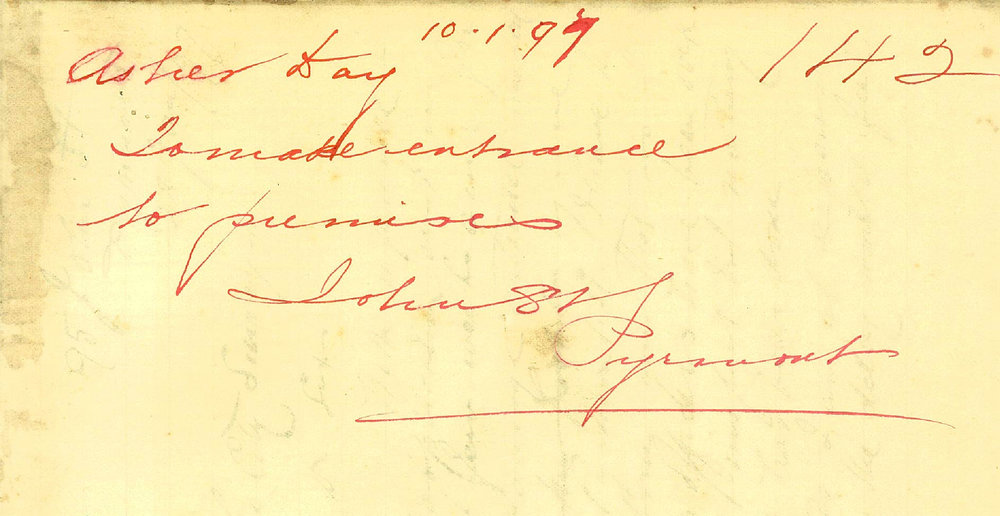 10.1.97
Asher Day 142
To make entrance
to premises
John St
Pyrmont